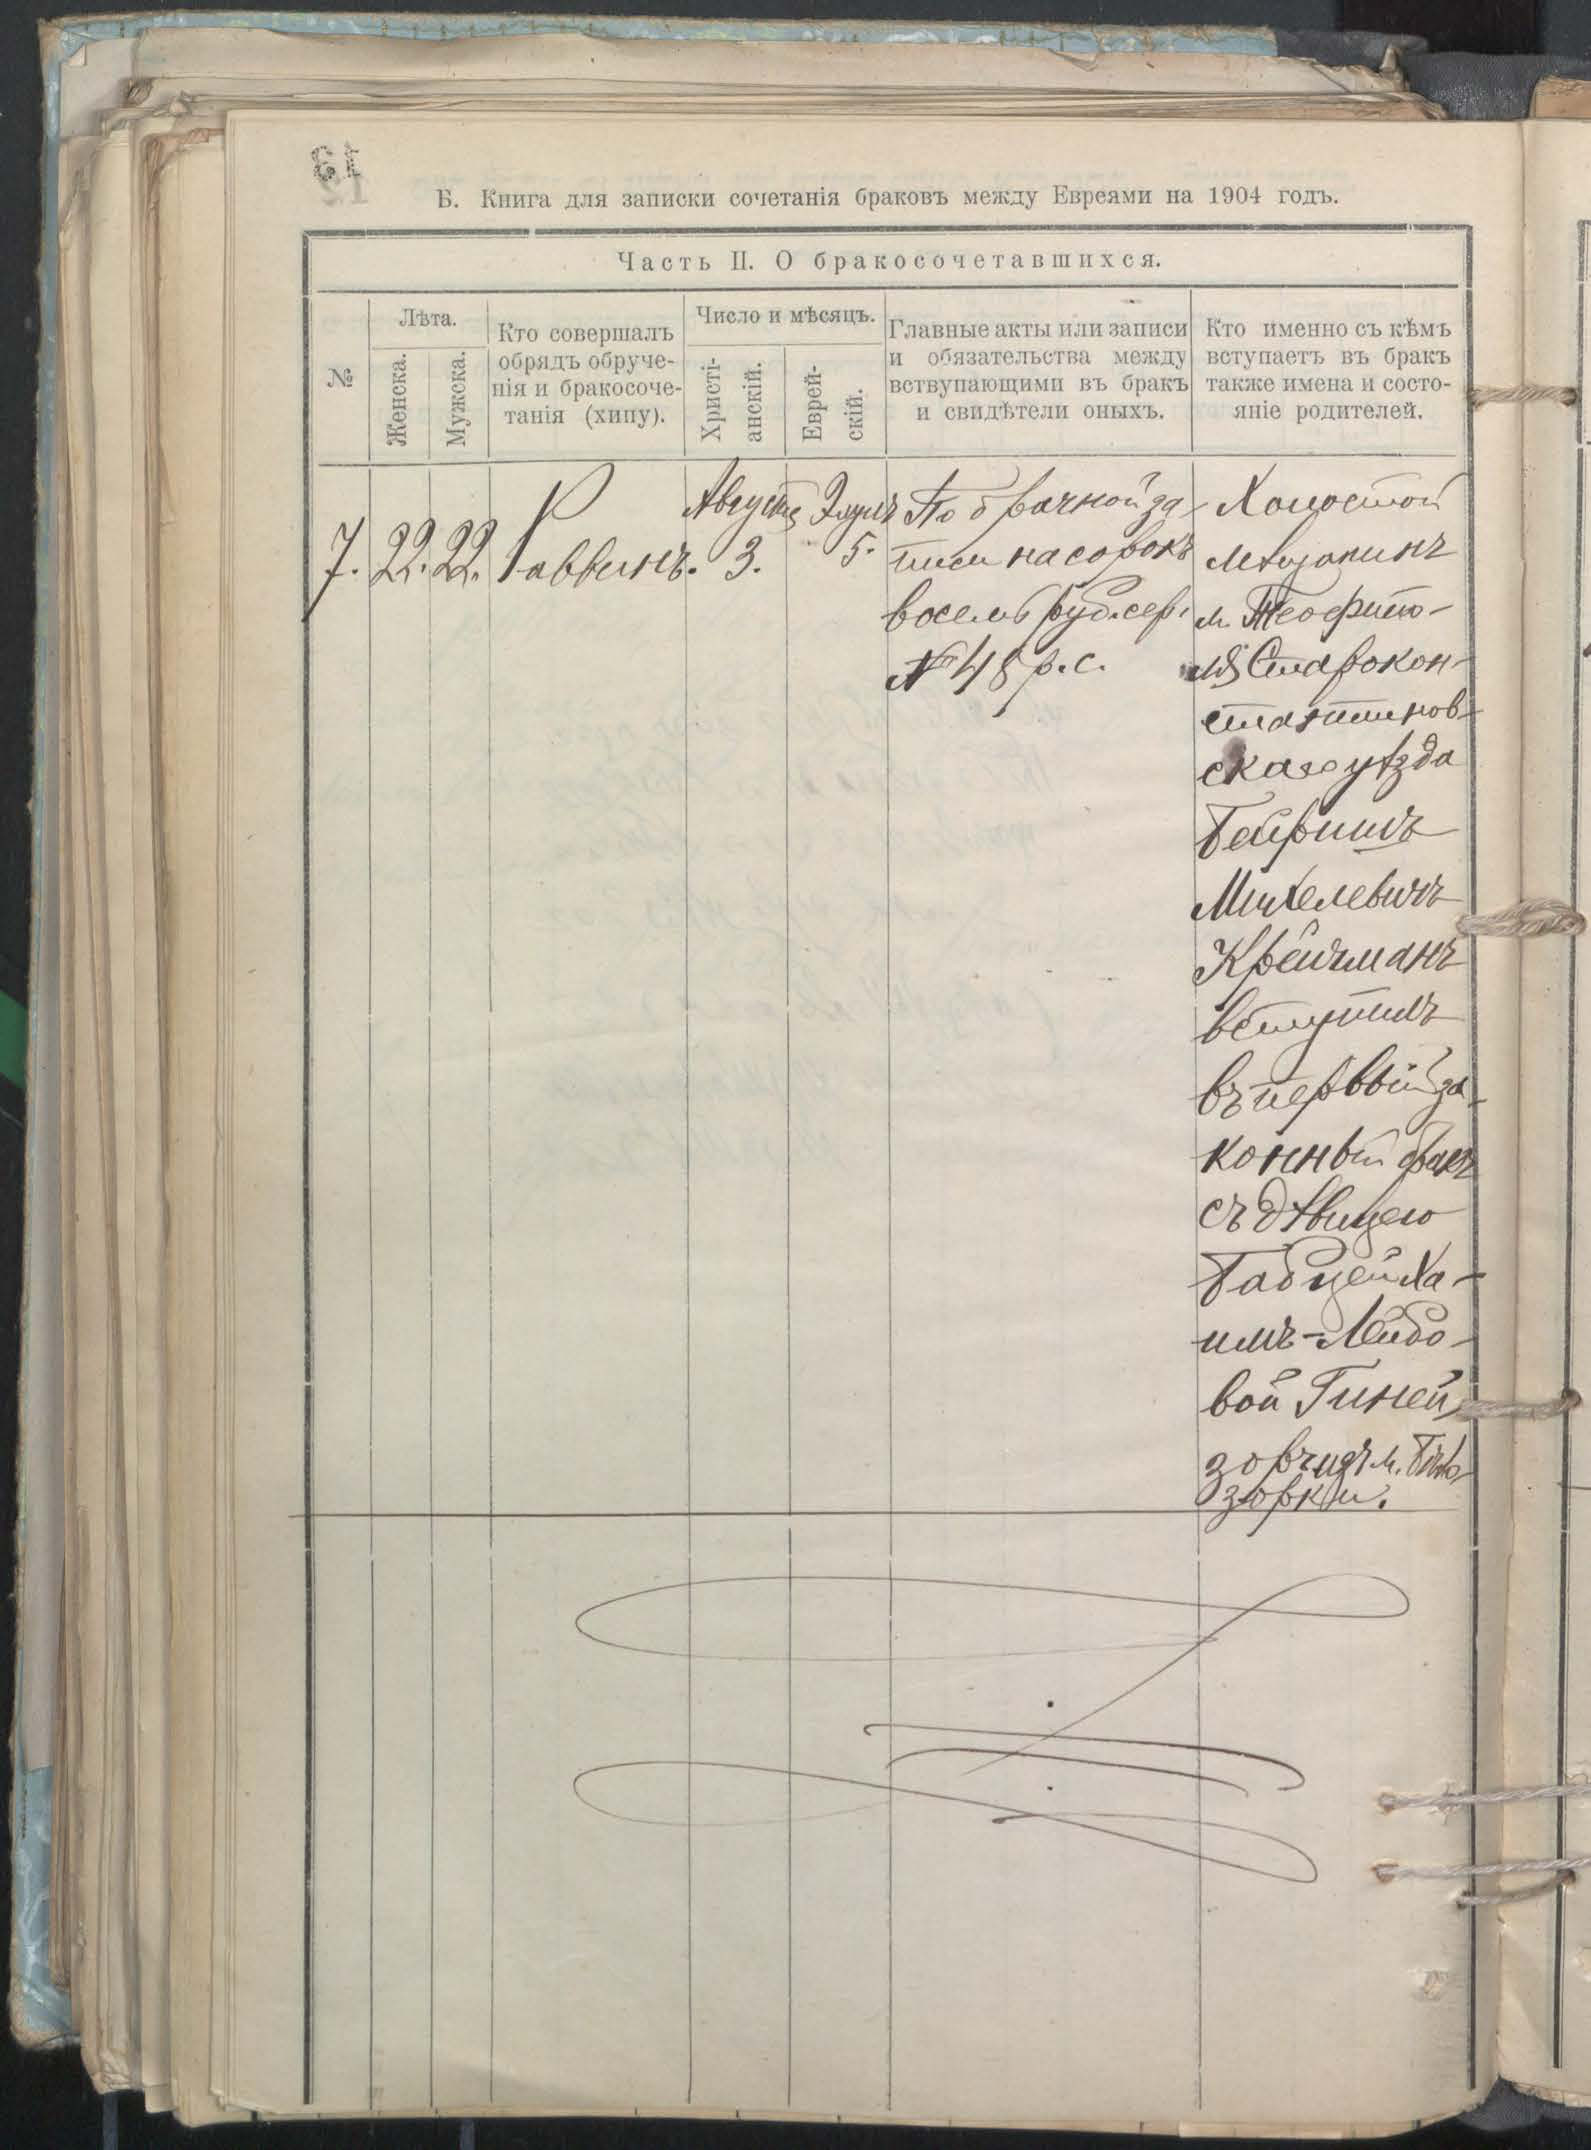 13
Б. Книга для записки сочетанія браковъ между Евреями на 1904 годъ.
Часть II. О бракосочетавшихся.
№
Лѣта.
Женска.
Мужска.
Кто совершалъ
обрядъ обруче-
нія и бракосоче-
танія (хипу).
Число и мѣсяцъ.
Христі-
анскій.
Еврей-
скій.
Главные акты или записи
и обязательства между
вствупающими въ бракъ
и свидѣтели оныхъ.
Кто именно съ кѣмъ
вступаетъ въ бракъ
также имена и состо-
яніе родителей.
7.
22.
22.
Раввинъ.
Августа
3.
Элулъ
5.
По брачной за-
писи на сорокъ
восемь руб. сер.
№ 48 р. с.
Холостой
мѣщанинъ
м. Теофипо-
ля Старокон-
стантинов-
скаго уѣзда
Бейришъ
Михелевичъ
Крейчманъ
вступилъ
въ первый за-
конный бракъ
съ дѣвицею
Бабцей Ха-
имъ-Лейбо-
вой Гиней
зовъ изъ м. Бѣло-
зорки.